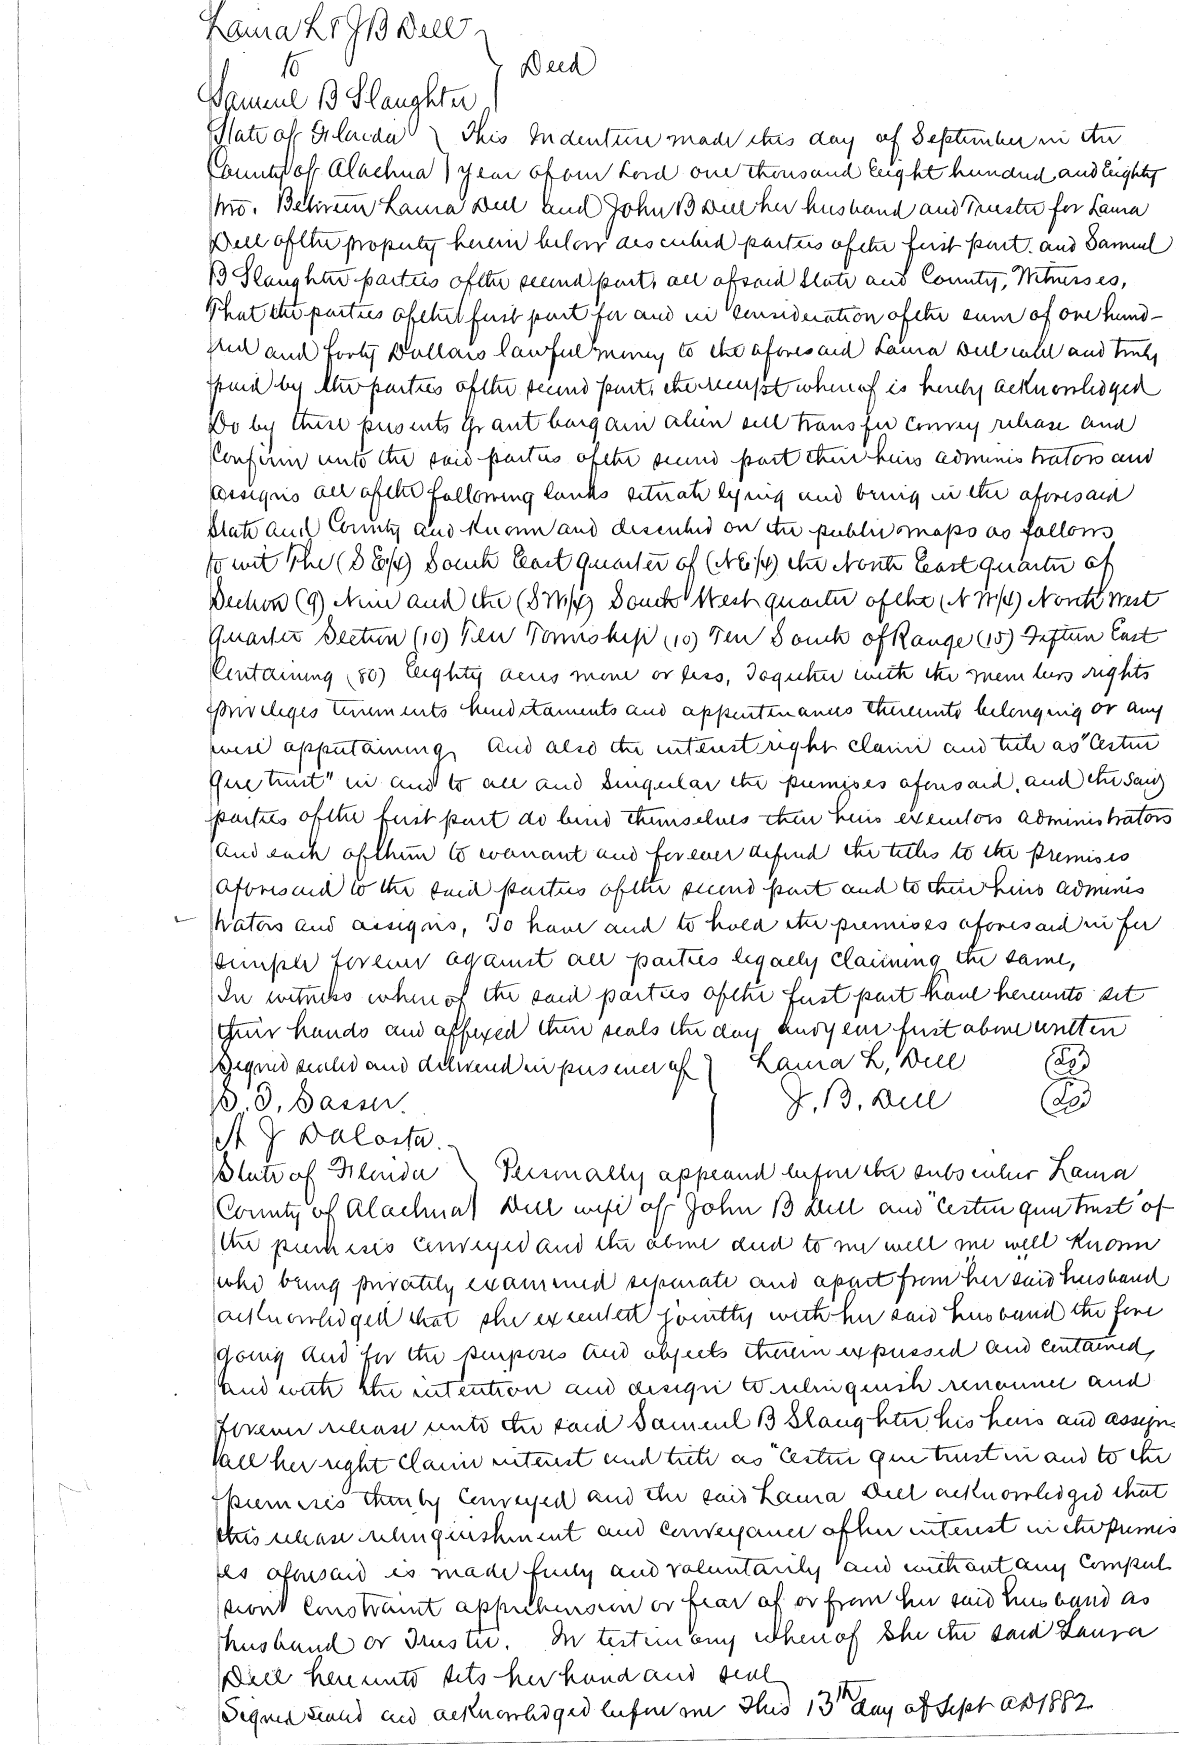 Laura L & J B Dell
to } Deed
Samuel B Slaughter
State of Florida } This Indenture made this day of September in the
County of Alachua } year of our Lord one thousand Eight hundred and Eighty
two. Between Laura Dell and John B Dell her husband and Trustee for Laura
Dell of the property herein below described parties of the first part. and Samuel
B Slaughter parties of the second part, all of said State and County, Witnesses,
That the parties of the first part for and in consideration of the sum of one hund-
red and forty Dollars lawful money to the aforesaid Laura Dell well and truly
paid by the parties of the second part, the receipt whereof is hereby acknowledged
Do by these presents grant bargain alien sell transfer convey release and
Confirm unto the said parties of the second part their heirs administrators and
assigns all of the following lands situate lying and being in the aforesaid
State and County and Known and described on the public maps as follows
to wit The (S E/4) South East quarter of (N E/4) the North East quarter of
Section (9) Nine and the (S W/4) South West quarter of the (N W/4) North West
quarter Section (10) Ten Township (10) Ten South of Range (15) Fifteen East
Containing (80) Eighty acres more or less, Together with the members rights
priviliges tenements hereditaments and appurtenances thereunto belonging or any
wise appertaining, And also the interest right claim and title as "Cestui
que trust" in and to all and Singular the premises aforesaid, and the said
parties of the first part do bind themselves their heirs executors administrators
and each of them to warrant and forever defend the titles to the premises
aforesaid to the said parties of the second part and to their heirs adminis
trators and assigns, To have and to hold the premises aforesaid in fee
simple forever against all parties legally claiming the same,
In witness whereof the said parties of the first part have hereunto set
their hands and affixed their seals the day and year first above written
Signed sealed and delivered in presence of } Laura L, Dell (LS)
S. T. Sasser. } J. B. Dell (LS)
A J DaCosta.
State of Florida } Personally appeared before the subscriber Laura
County of Alachua } Dell wife of John B Dell and "Cestui que trust" of
the premises conveyed and the above deed to me well me well Known
who being privately examined separate and apart from her said husband
acknowledged that she executed jointly with her said husband the fore
going and for the purposes and objects therein expressed and contained,
and with the intention and design to relinquish renounce and
forever release unto the said Samuel B Slaughter his heirs and assigns
all her right claim interest and title as "Cestui que trust in and to the
premises thereby conveyed and the said Laura Dell acknowledged that
this release relinquishment and conveyance of her interest in the premis
es aforesaid is made freely and voluntarily and without any Compul
sion Constraint apprehension or fear of or from her said husband as
husband or Trustee. In testimony whereof She the said Laura
Dell hereunto sets her hand and seal
Signed sealed and acknowledged before me This 13th day of Sept AD 1882